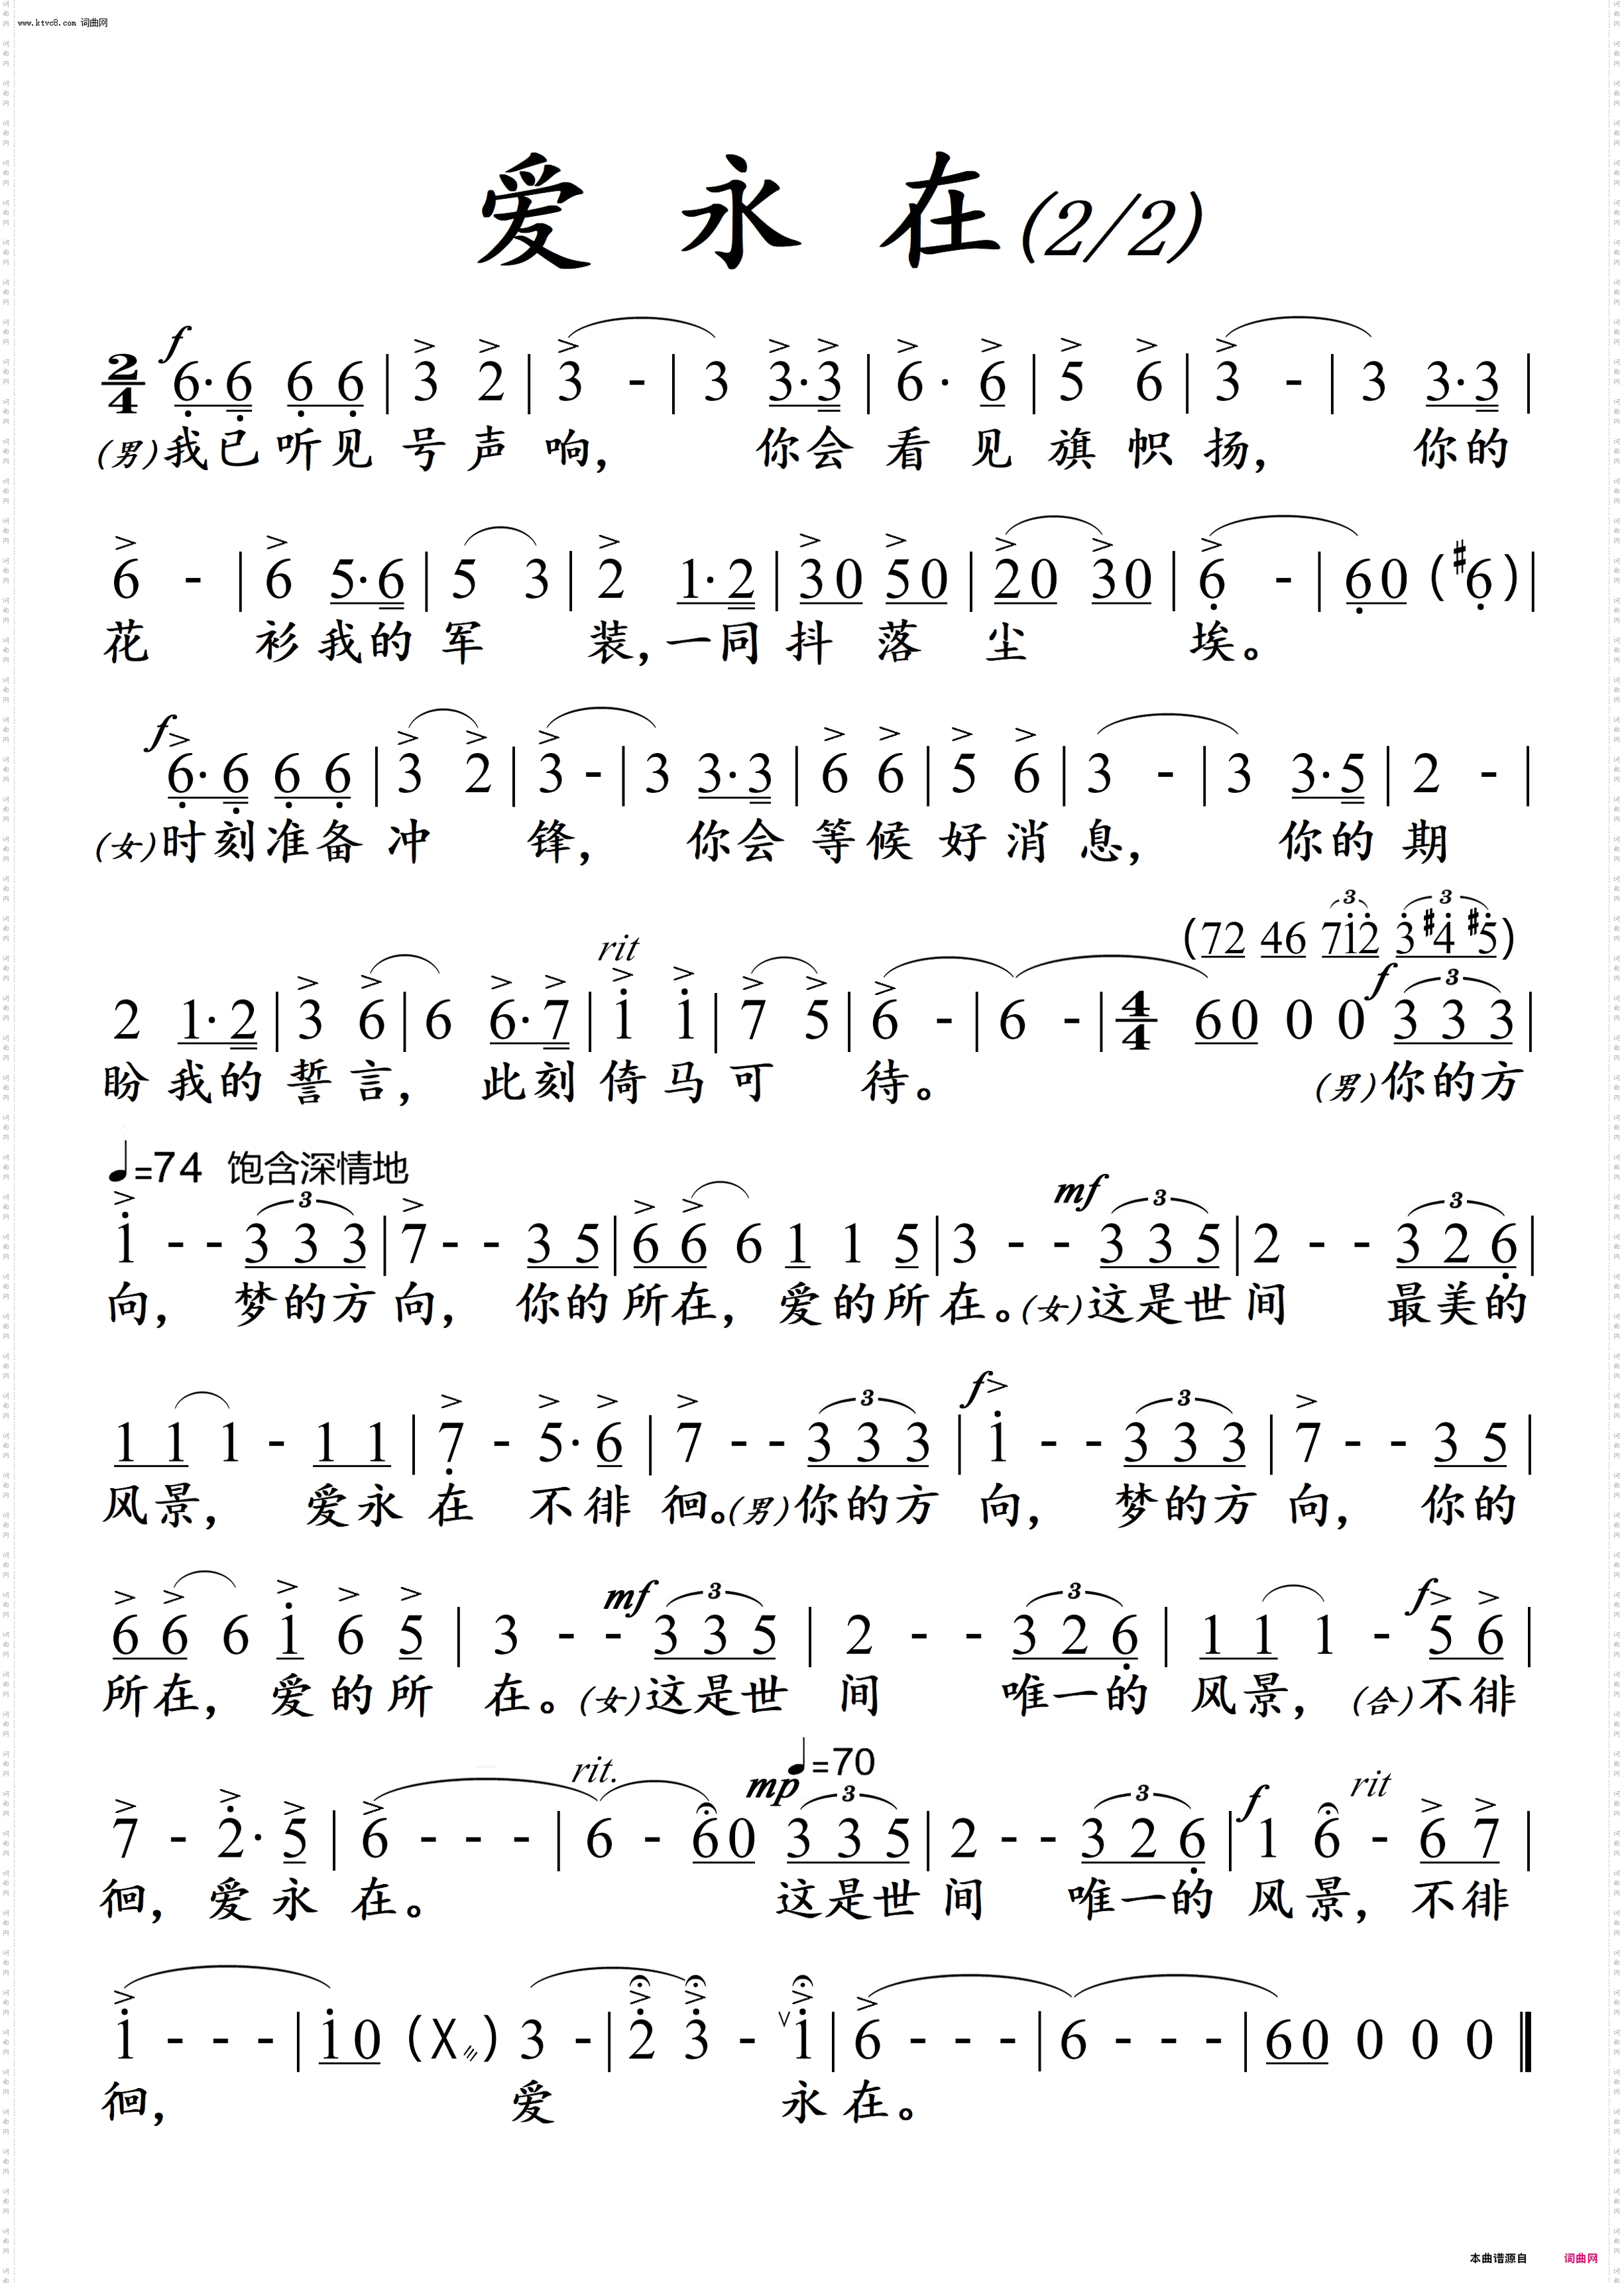 www.ktvc8.com 词曲网
爱 永 在(2/2)
f
2/4 6·6 6 6 | 3 2 | 3 - | 3 3·3 | 6· 6 | 5 6 | 3 - | 3 3·3 |
(男)我已听见 号声响, 你会看见旗帜扬, 你的
6 - | 6 5·6 | 5 3 | 2 1·2 | 30 50 | 20 30 | 6 - | 60 (#6) |
花 衫我的军 装,一同抖落尘 埃。
f
6·6 6 6 | 3 2 | 3 - | 3 3·3 | 6 6 | 5 6 | 3 - | 3 3·5 | 2 - |
(女)时刻准备冲 锋, 你会等候好消息, 你的期
(72 46 712 3#4#5)
rit f
2 1·2 | 3 6 | 6 6·7 | 1 1 | 7 5 | 6 - | 6 - | 4/4 60 0 0 3 3 3 |
盼我的誓言, 此刻倚马可 待。 (男)你的方
♩=74 饱含深情地
mf
1 - - 3 3 3 | 7 - - 3 5 | 6 6 6 1 1 5 | 3 - - 3 3 5 | 2 - - 3 2 6 |
向, 梦的方向, 你的所在, 爱的所在。(女)这是世间 最美的
f
1 1 1 - 1 1 | 7 - 5· 6 | 7 - - 3 3 3 | 1 - - 3 3 3 | 7 - - 3 5 |
风景, 爱永在 不徘徊。(男)你的方向, 梦的方向, 你的
mf f
6 6 6 1 6 5 | 3 - - 3 3 5 | 2 - - 3 2 6 | 1 1 1 - 5 6 |
所在, 爱的所 在。(女)这是世间 唯一的风景, (合)不徘
rit. mp ♩=70 f rit
7 - 2· 5 | 6 - - - | 6 - 60 3 3 5 | 2 - - 3 2 6 | 1 6 - 6 7 |
徊, 爱永在。 这是世间 唯一的风景, 不徘
1 - - - | 10 (X) 3 - | 2 3 - 1 | 6 - - - | 6 - - - | 60 0 0 0 ‖
徊, 爱 永在。
本曲谱源自 词曲网